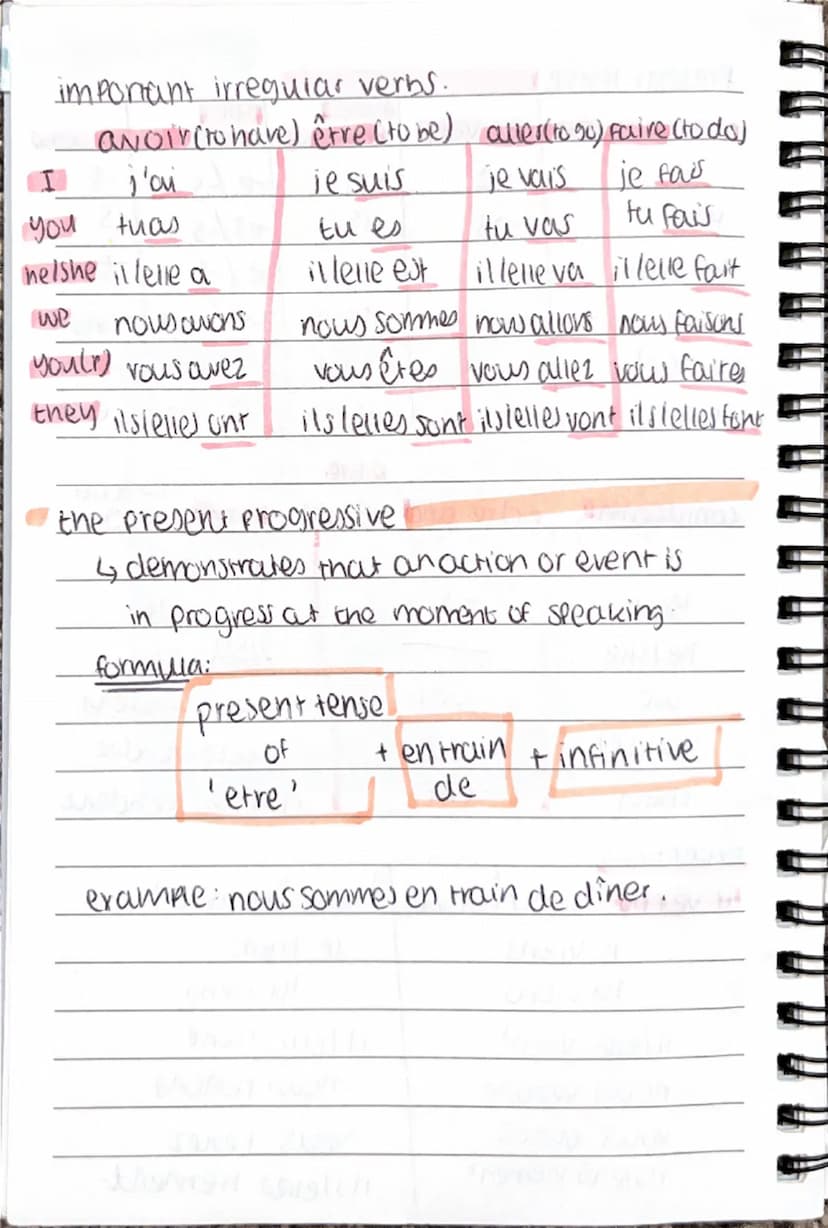 important irregular verbs.
avoir (to have) être (to be) aller (to go) faire (to do)
I j'ai je suis je vais je fais
you tu as tu es tu vas tu fais
he/she il/elle a il/elle est il/elle va il/elle fait
we nous avons nous sommes nous allons nous faisons
you(r) vous avez vous êtes vous allez vous faires
they ils/elles ont ils/elles sont ils/elles vont ils/elles font
the present progressive
↳ demonstrates that an action or event is
in progress at the moment of speaking
formula:
present tense
of + en train + infinitive
'etre' de
example: nous sommes en train de dîner.